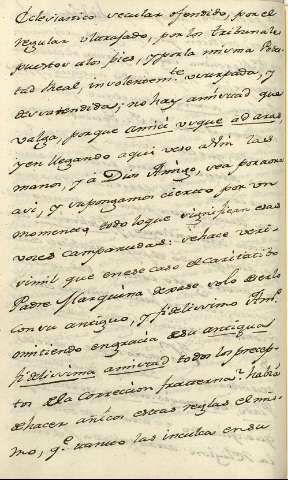 Eclesiastico secular ofendido, por el
regular ultrajado, por los tribunales
puestos a los pies, y por la misma Potes
tad Real, insolentem.te usurpada, y
desatendida; no hay amistad que
valga, porque amici usque ad aras,
y en llegando aqui beso a Vm las
manos, y á Dios Amigo, sea por aora
asi, y supongamos cierto por un
momento todo loque significan esas
voces campanudas: se hace veri-
simil que en ese caso el caritativo
Padre Marquina dexase solo de serlo
con su antiguo, y fidelissimo Am.o
omitiendo en gracia de su antigua
fidelissima amistad todos los precep-
tos de la correccion fraterna? había
de hacer añicos estas reglas el mis-
mo, q.e tanto las inculca en su